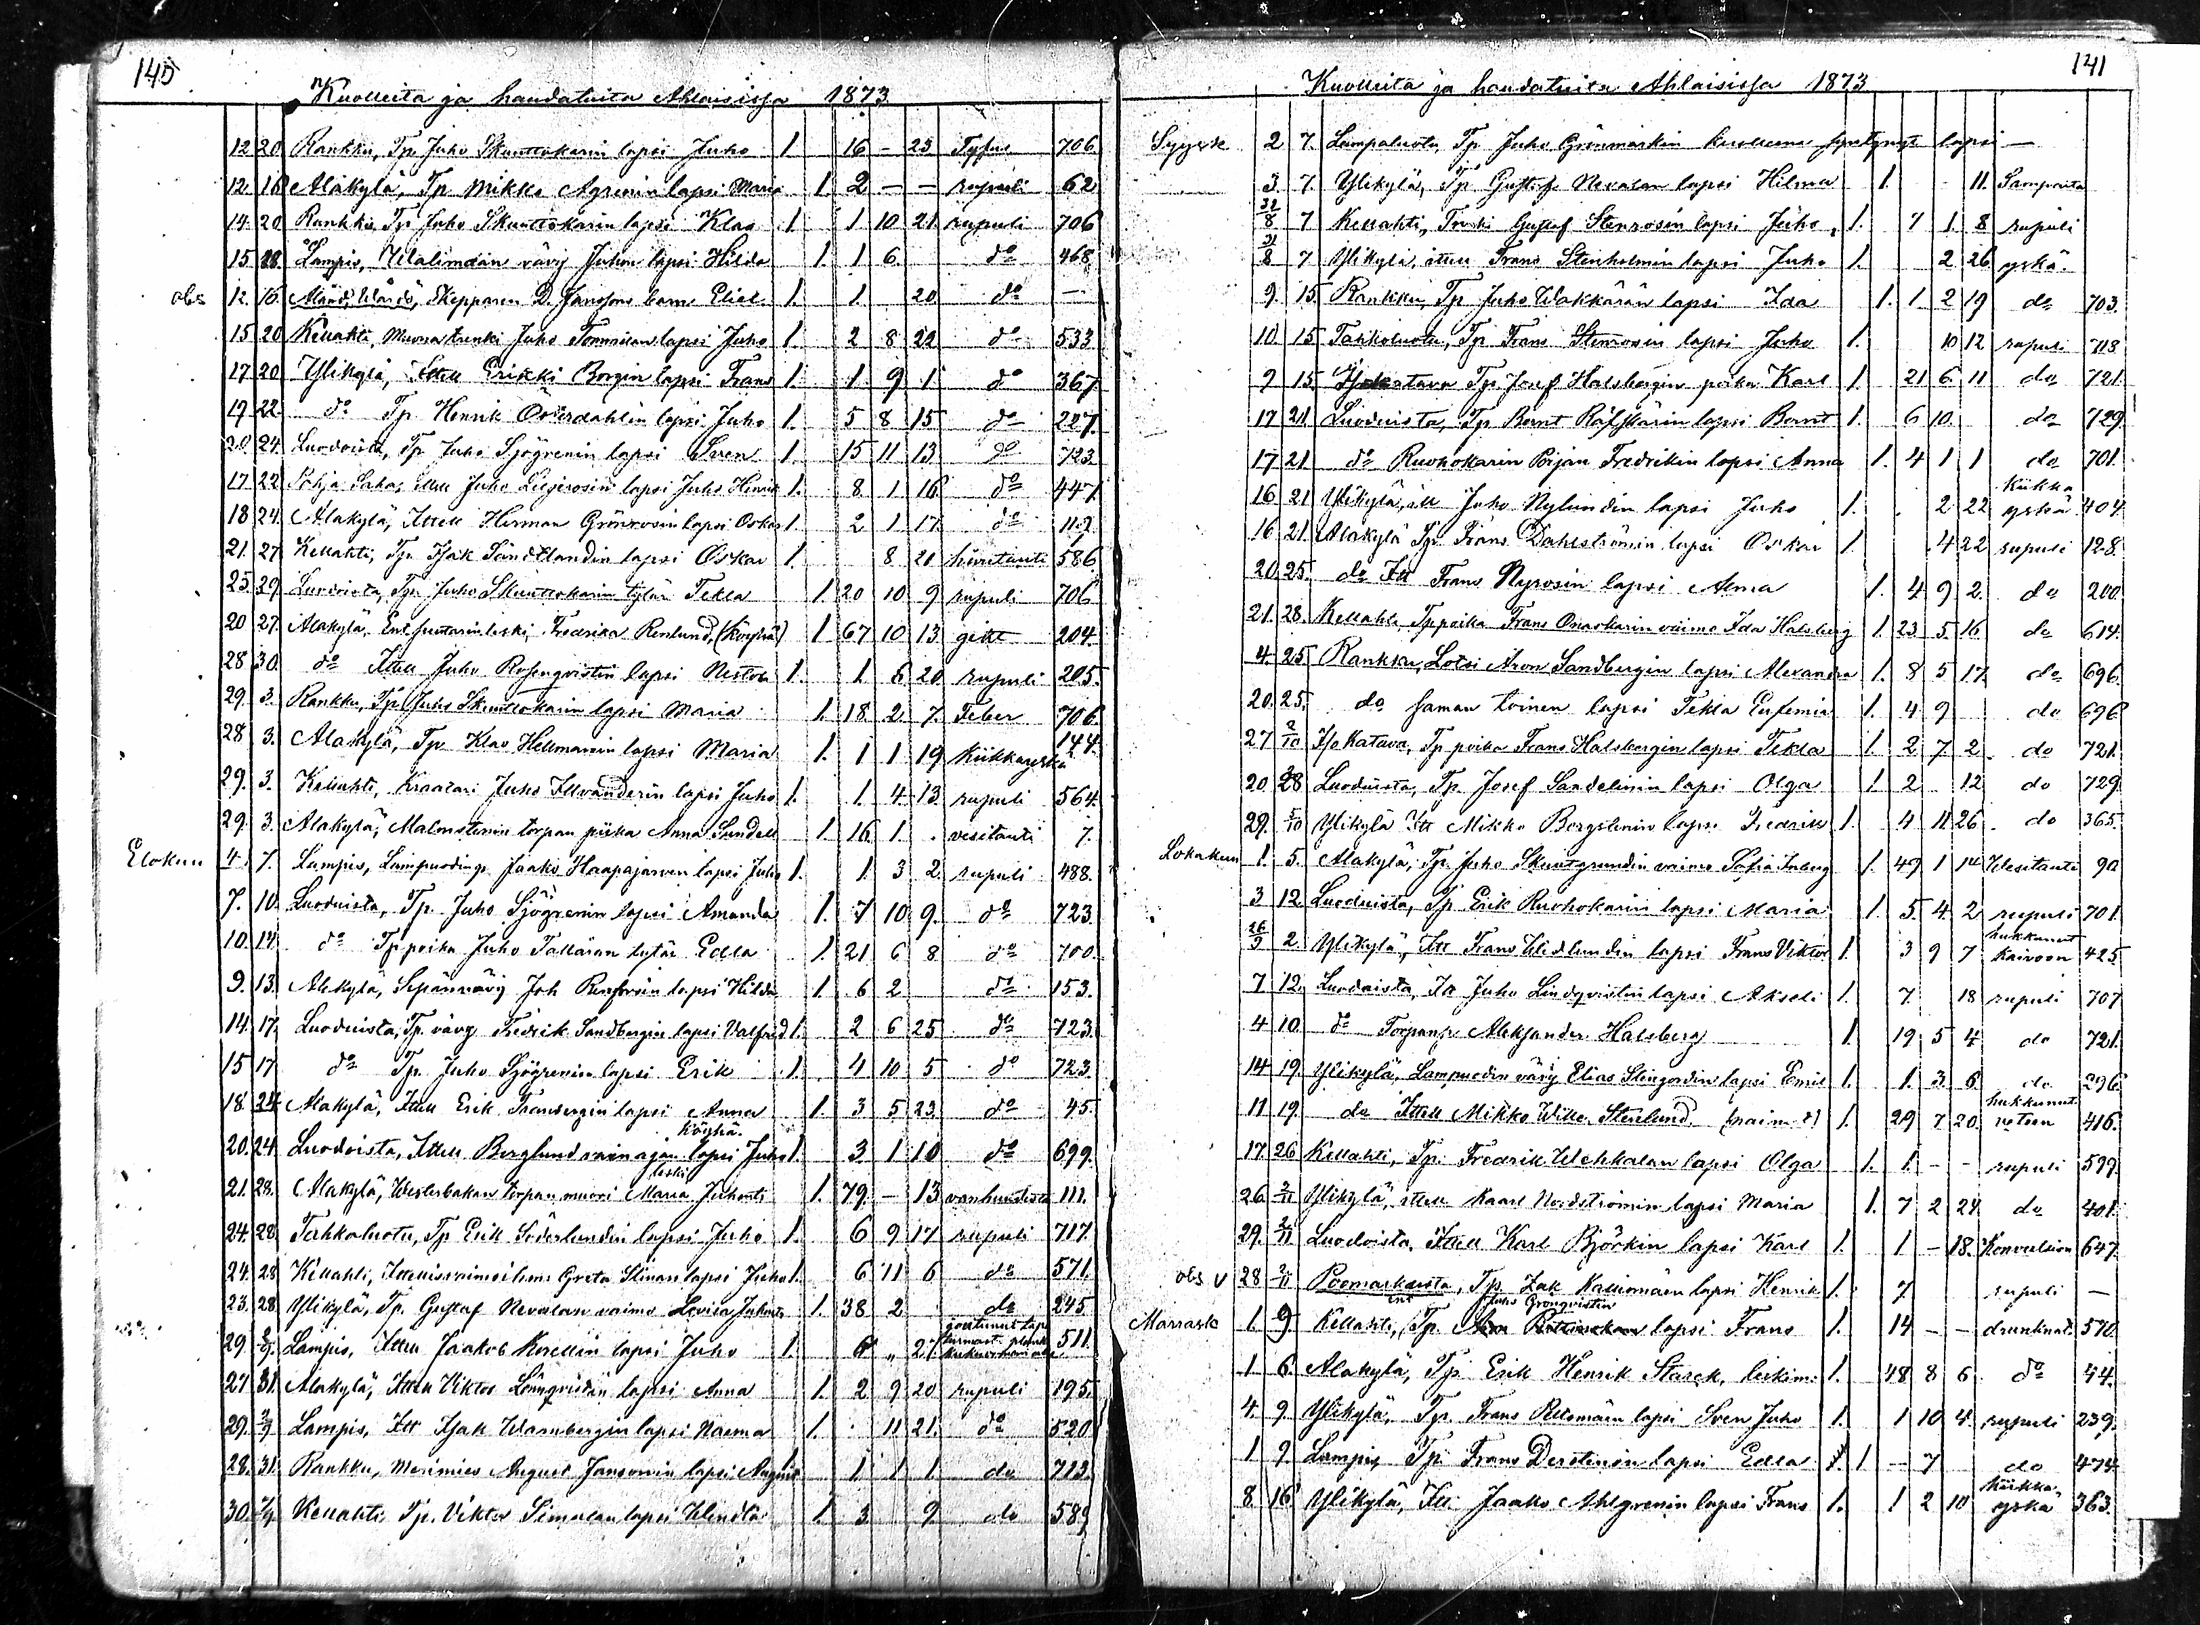 140
Kuolleita ja haudatuita Ahlaisissa 1873
12 20 Rankku, Tp. Juho Skuuttokarin lapsi Juho 1. 16 – 23 Tyfus 706
12 16 Alakylä, Tp. Mikko Agrenin lapsi Maria 1 2 – – rupuli 62
14 20 Rankku, Tp Juho Skuuttokarin lapsi Klas 1 1 10 21 rupuli 706
15 28 Lampis, Yilalimään vävy Juhon lapsi Hilda 1. 1 6 do 468
obs 12 16 Åland, Wårdö, Skepparen D. Jansons barn Eliel 1. 1. 20 do —
15 20 Kellahti, Muona trenki Juho Tommilan lapsi Juho 1. 2 8 22 do 533
17 20 Ylikylä, Ittell Erikki Borgin lapsi Frans 1 1 9 1 do 367
19 22 do Tp. Henrik Österdahlin lapsi Juho 1. 5 8 15 do 227
20 24 Luodoista, Tp Juho Sjögrenin lapsi Sven 1. 15 11 13 do 723
17 22 Pohja Saha, Ittell Juho Liljerosin lapsi Juho Henrik 1. 8 1 16 do 447
18 24 Alakylä, Ittell Herman Grönrosin lapsi Oskar 1. 2 1 17 do 119
21. 27 Kellahti, Tp. Isak Sandtlandin lapsi Oskar 1 8 20 hivutauti 586
25 29 Luodoista, Tp. Juho Skuuttokarin tytär Tekla 1. 20 10 9 rupuli 706
20 27 Alakylä, leski Fredrika Renlund, (Köyhä) 1 67 10 13 gikt 204
28 30. do Ittell Juho Rosenqvistin lapsi Nestor 1. 1 6 20 rupuli 205.
29. 3. Rankku, Tp. Juho Skuuttokarin lapsi Maria 1. 18 2 7. Feber 706
28 3. Alakylä, Tp. Klas Hellmanin lapsi Maria 1. 1 1 19 kiikkayskä 144.
29. 3. Kellahti, Kraatari Juho Illvanderin lapsi Juho 1. 1. 4 13 rupuli 564
29. 3. Alakylä, Malmstenin torpan piika Anna Sundell 1. 16 1. vesitauti 7.
Elokuu 4. 7. Lampis, Lampuodin p. Jaako Haapajarven lapsi Juho 1. 1 3 2 rupuli 488.
7. 10. Luoduista, Tp Juho Sjögrenin lapsi Amanda 1. 7 10 9. do 723
10. 14 do Tp poika Juho Tallären tytär Edla 1. 21 6 8 do 700.
9. 13. Alakylä, Sepänvävy Joh Renforsin lapsi Hilda 1. 6 2 do 153.
14. 17. Luoduista, Tp. vävy Fredrik Sandbergin lapsi Valfrid 1. 2 6 25 do 723.
15 17 do Tp. Juho Sjögrenin lapsi Erik 1. 4 10 5 do 723.
18. 24 Alakylä, Ittell Erik Fransergin lapsi Anna 1. 3 5 23. do 45.
köyhä.
20. 24 Luodoista, Ittell Berglund vainajan lapsi Juho 1. 3 1 10 do 699.
leski
21. 28. Alakylä, Westerbakan torpan muori Maria Juhontr 1. 79. – 13 vanhuudesta 111.
24. 28 Tahkoluotu, Tp Erik Söderlundin lapsi Juho 1. 6 9 17 rupuli 717.
24. 28 Kellahti, Greta Stinan lapsi Juho 1. 6 11 6 do 571.
23. 28 Ylikylä, Tp. Gustaf Nevalan vaimo Lovisa Juhontr 1. 38 2 do 245
29. 2/9. Lampis, Ittell Jaakob Korellin lapsi Juho 1. 6 „ 27 511.
27 31. Alakylä, Ittell Viktor Lönnqvistin lapsi Anna 1. 2 9 20 rupuli 195.
29. 2/9 Lampis, Itt Isak Warnbergin lapsi Naema 1. 11 21. do 520
28. 31. Rankku, Merimies August Jansonin lapsi August 1 1 1 1. do 713.
30. 7/9 Kellahti Tp. Viktor Simulan lapsi Wendla 1. 3 9. do 589
141
Kuolleita ja haudatuita Ahlaisissa 1873
Syysk 2 7. Lampaluotu, Tp. Juho Grönmarkin kuolleena syntynyt lapsi —
3. 7. Ylikylä, Tp. Gustaf Nevalan lapsi Hilma 1. 11.
8 7 Kellahti, Trenki Gustaf Stenrosin lapsi Juho 1. 7 1. 8 rupuli
31/8 7 Ylikylä, ittell Frans Stenholmin lapsi Juho 1. 2 26 yskä.
9. 15. Rankku, Tp Juho Wakkärän lapsi Ida 1. 1 2 19 do 703.
10. 15 Tahkoluotu, Tp Frans Stenrosin lapsi Juho 1. 10 12 rupuli 718
9 15. Tp. Josef Halsbergin poika Karl 1. 21 6 11 do 721.
17 21 Luoduista, Tp Bernt Räfskärin lapsi Bernt 1. 6 10. do 729.
17 21 do Ruohokarin Pirjan Fredrikin lapsi Anna 1. 4 1 1 do 701.
16 21 Ylikylä, itt Juho Nylundin lapsi Juho 1. 2 22 kiikka yskä 404
16 21. Alakylä Tp Frans Dahlströmin lapsi Oskar 1. 4 22 rupuli 128.
20. 25. do Itt Frans Nyrosin lapsi Alma 1. 4 9 2. do 200.
21. 28. Kellahti, Tp poika Frans Onaskarin vaimo Ida Halsberg 1. 23. 5. 16. do 614.
4. 25 Rankku, Lotsi Aron Sandbergin lapsi Alexandra 1. 8 5 17. do 696.
20. 25. do saman toinen lapsi Tekla Eufemia 1. 4 9 do 696
27 2/10 Iso Katava, Tp poika Frans Halsbergin lapsi Tekla 1. 2 7 2. do 721.
20 28 Luoduista, Tp. Josef Sandelinin lapsi Olga 1 2 12 do 729.
29. 5/10 Ylikylä Itt Mikko Bergstenin lapsi Fredrik 1. 4 11 26 do 365.
Lokakuu 1. 5. Alakylä, Tp. Juho Skuutgrundin vaimo Sofia Inberg 1. 49 1 14 Wesitauti 90
3 12 Luoduista, Tp Erik Ruohokarin lapsi Maria 1. 5. 4 2 rupuli 701.
26/9 2. Ylikylä, Itt Frans Wedlundin lapsi Frans Viktor 1. 3 9 7 hukkunut kaivoon 425
7 12. Luodoista, Itt Juho Lindqvistin lapsi Akseli 1. 7. 18 rupuli 707
4 10. do Torpanp. Aleksander Halsberg 1. 19 5 4 do 721.
14 19. Ylikylä, Lampuodin vävy Elias Stengordin lapsi Emil 1. 1. 3 6. do 296.
11 19. do Ittell Mikko Wilh. Stenlund (naim.) 1. 29 7 20. hukkunut veteen 416.
17. 26 Kellahti, Tp. Fredrik Wehkalan lapsi Olga 1. 1. – – rupuli 599.
26. 2/11 Ylikylä, ittell Kaarl Nordströmin lapsi Maria 1. 7 2 24 do 401.
29. 2/11 Luodoista, Ittell Karl Björkin lapsi Karl 1. 1 – 18. Konvulsion 647
obs v 28 2/11 Poomarkusta, Tp. Isak Kalliomäen lapsi Henrik 1. 7 rupuli —
Juho Grönqvistin
Marrask 1. 9. Kellahti, Tp. lapsi Frans 1. 14 – – drunknat 570.
1 6. Alakylä, Tp. Erik Henrik Starck, leskim. 1. 48 8 6 do 44.
4. 9. Ylikylä, Tp. Frans Rellomäen lapsi Sven Juho 1. 1 10 4. rupuli 239.
1 9. Lampis Tp. Frans Derstenin lapsi Edla 1 – 7 do 474
8. 16. Ylikylä, Itt Jaako Ahlgrenin lapsi Frans 1. 1 2 10 kiikka yskä 363.